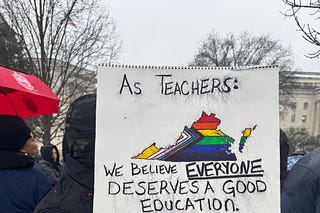 AS TEACHERS:
WE BELIEVE EVERYONE
DESERVES A GOOD
EDUCATION.